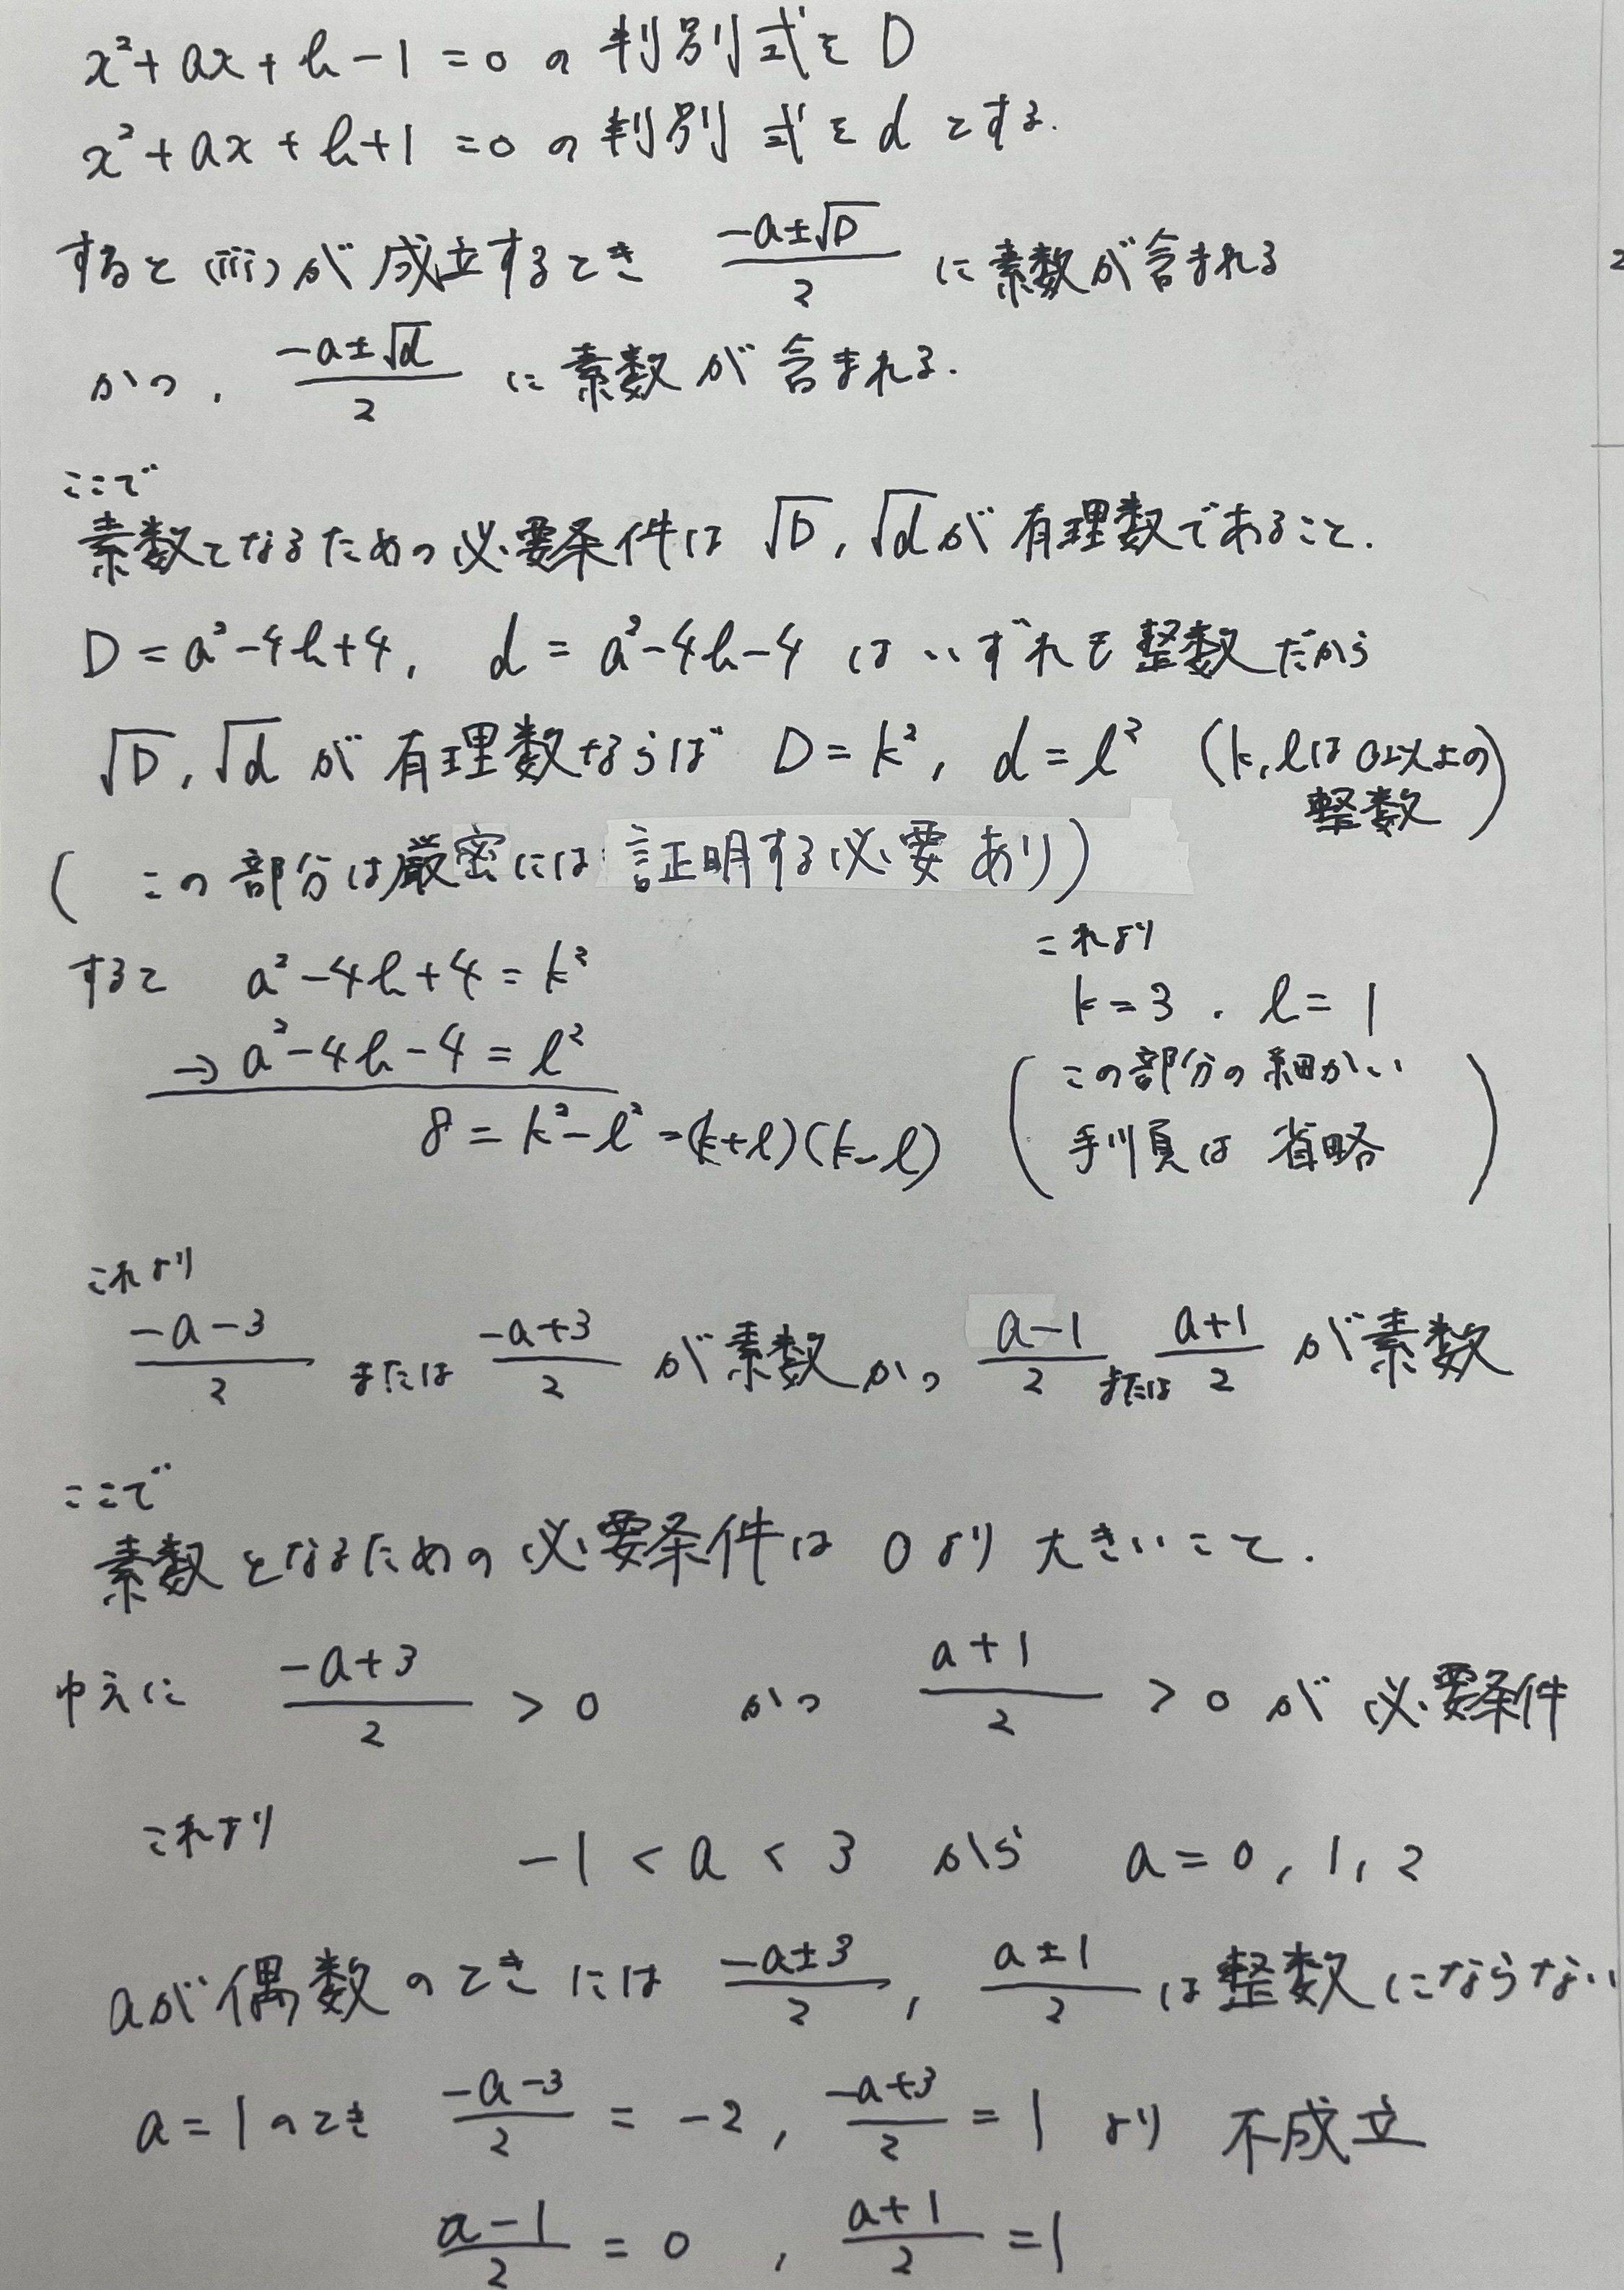 x²+ax+b-1=0 の判別式を D
x²+ax+b+1=0 の判別式を d とする.
すると (iii) が成立するとき (-a±√D)/2 に素数が含まれる
かつ, (-a±√d)/2 に素数が含まれる.
ここで
素数となるための必要条件は √D, √d が有理数であること.
D=a²-4b+4, d=a²-4b-4 はいずれも整数だから
√D, √d が有理数ならば D=k², d=l² (k, l は 0以上の整数)
( この部分は厳密には証明する必要あり)
すると a²-4b+4=k²
-) a²-4b-4=l²
8=k²-l²=(k+l)(k-l)
これより
k=3. l=1
(この部分の細かい
手順は省略)
これより
(-a-3)/2 または (-a+3)/2 が素数かつ (a-1)/2 または (a+1)/2 が素数
ここで
素数となるための必要条件は 0より大きいこと.
ゆえに (-a+3)/2 > 0 かつ (a+1)/2 > 0 が必要条件
これより -1<a<3 から a=0, 1, 2
aが偶数のときには (-a±3)/2, (a±1)/2 は整数にならない
a=1のとき (-a-3)/2 = -2, (-a+3)/2 = 1 より 不成立
(a-1)/2 = 0, (a+1)/2 = 1